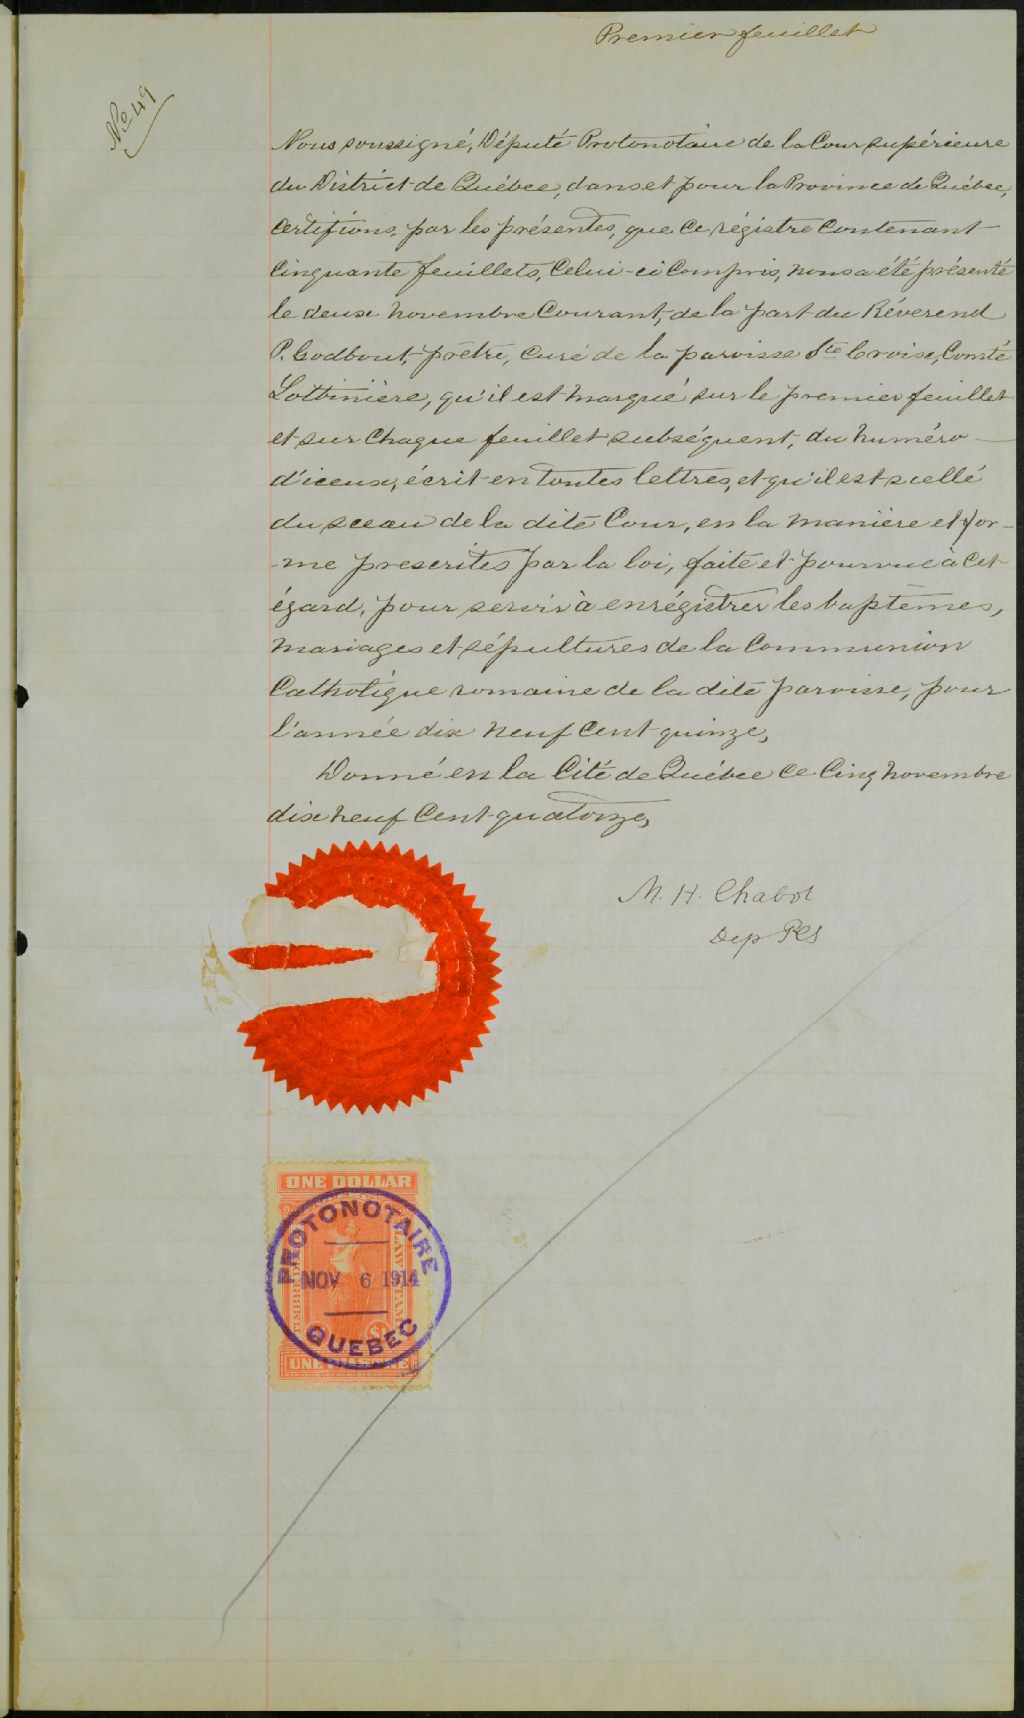 Premier feuillet
No 49
Nous soussigné, Député Protonotaire de la Cour supérieure
du District de Québec, dans et pour la Province de Québec,
certifions, par les présentes, que ce régistre contenant
cinquante feuillets, celui-ci compris, nous a été présenté
le deux novembre courant, de la part du Réverend
P. Godbout, prêtre, curé de la paroisse Ste Croix, Comté
Lotbinière, qu'il est marqué sur le premier feuillet
et sur chaque feuillet subséquent, du numéro
d'iceux, écrit en toutes lettres, et qu'il est scellé
du sceau de la dite Cour, en la manière et for-
-me prescrites par la loi, faite et pourvue à cet
égard, pour servir à enrégistrer les baptêmes,
mariages et sépultures de la Communion
Catholique romaine de la dite paroisse, pour
l'année dix neuf cent quinze,
Donné en la Cité de Québec ce cinq novembre
dix neuf cent quatorze,
M. H. Chabot
Dep PCS
ONE DOLLAR
PROTONOTAIRE
NOV 6 1914
QUEBEC
$1
UNE PIASTRE